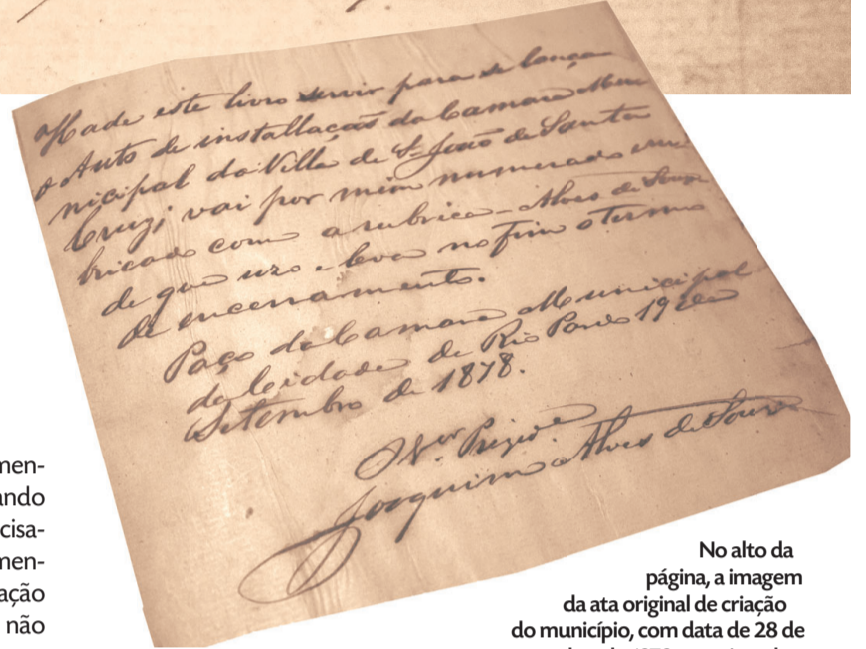 Hade este livro servir para se lança
o Auto de installação da Camara Mu
nicipal da Villa de S. João de Santa
Cruz; vai por mim numerado e ru
bricado com a rubrica - Alves de Souza
de que uzo e leva no fim o termo
de encerramento.
Paço da Camara Municipal
da Cidade de Rio Pardo 19 de
Setembro de 1878.
O Ver
Joaquim Alves de Souza
men-
ando
cisa-
men-
ação
não
No alto da
página, a imagem
da ata original de criação
do município, com data de 28 de